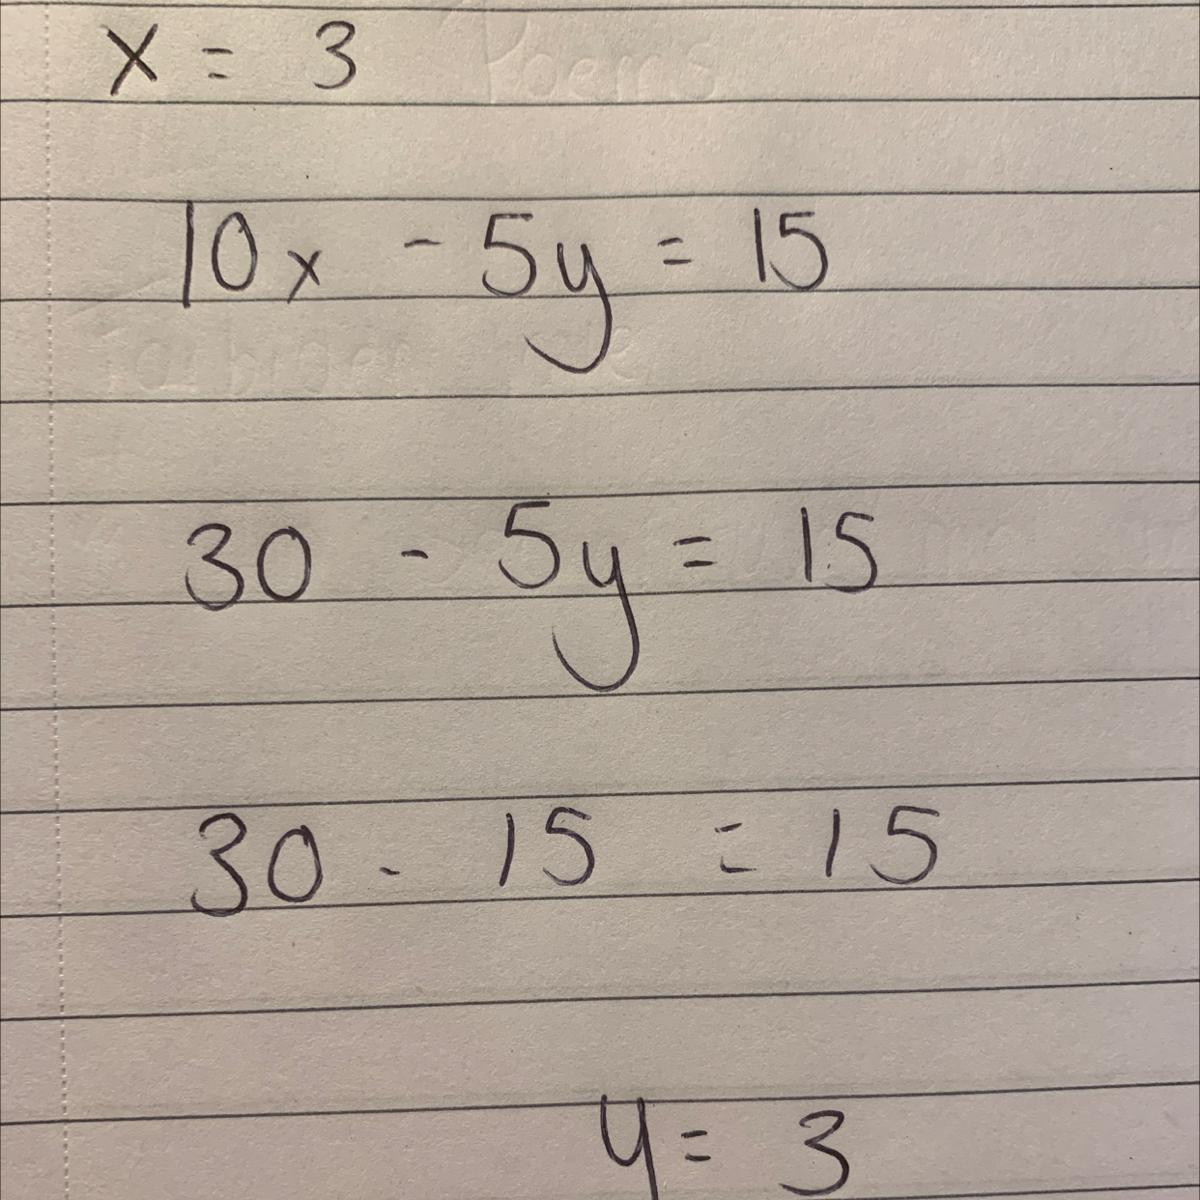 x = 3
10x - 5y = 15
30 - 5y = 15
30 - 15 = 15
y = 3